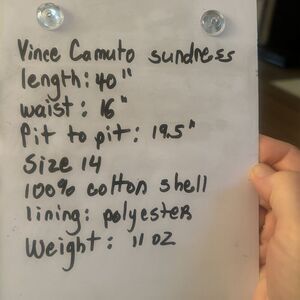 Vince Camuto sundress
length: 40"
waist: 16"
Pit to pit: 19.5"
Size 14
100% cotton shell
lining: polyester
Weight: 11 oz